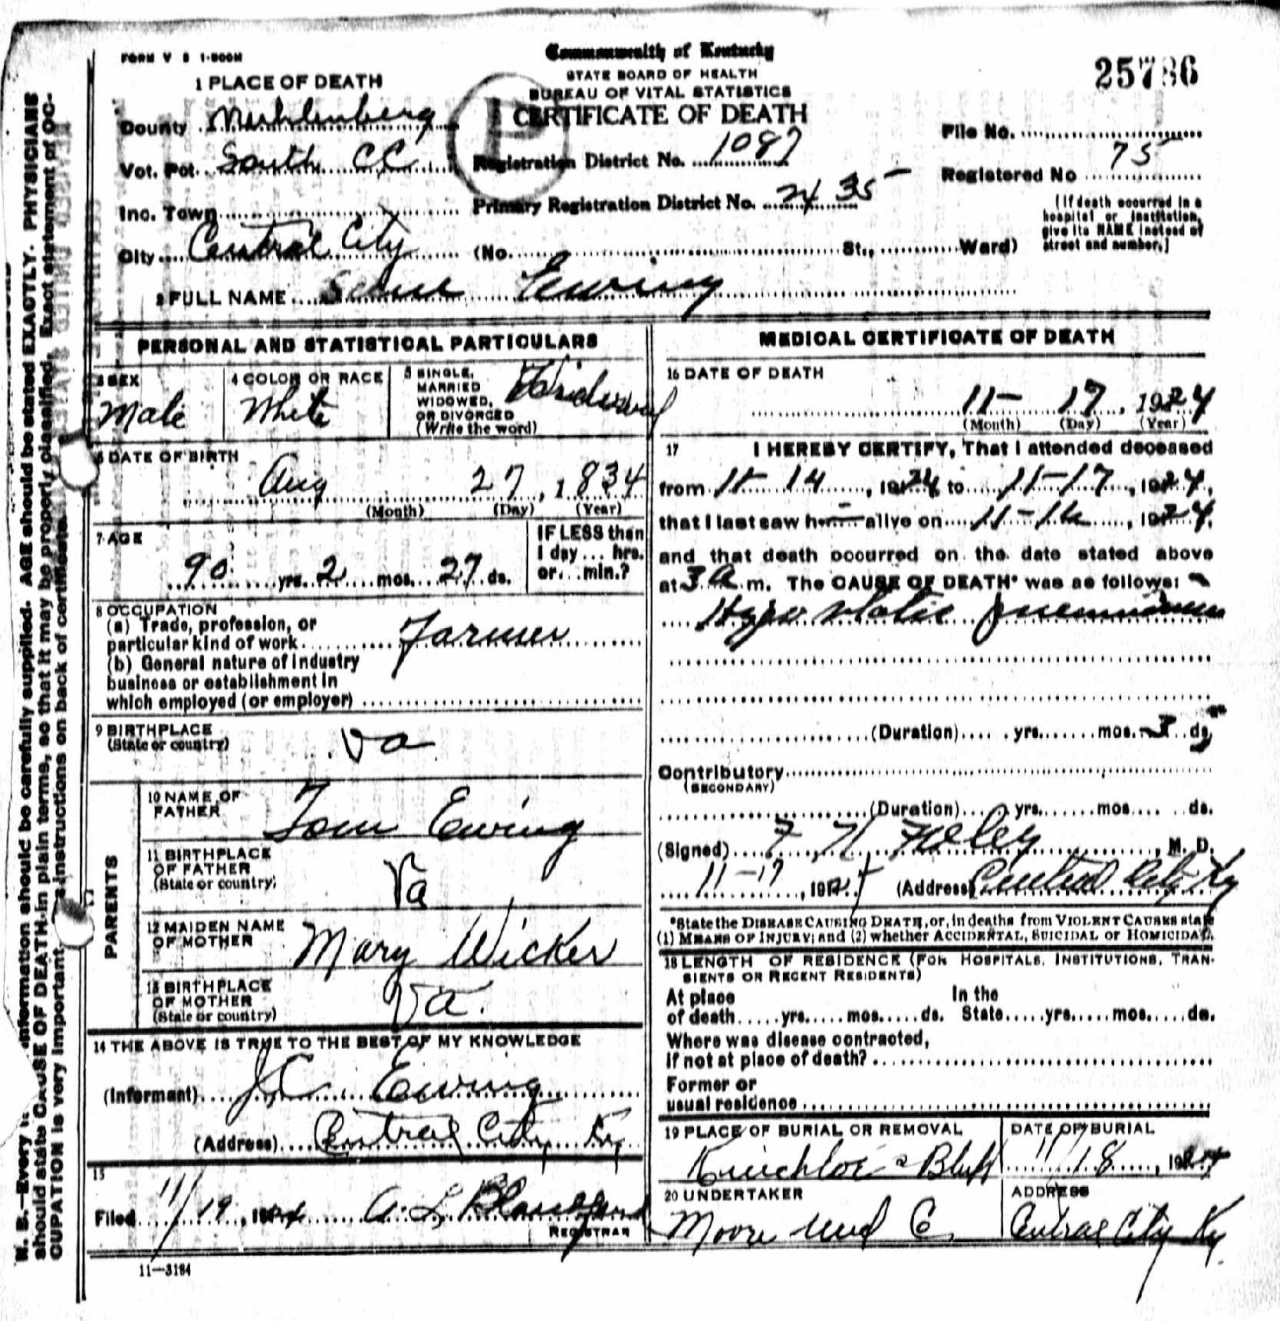 FORM V S 1-500M
Commonwealth of Kentucky
STATE BOARD OF HEALTH
BUREAU OF VITAL STATISTICS
CERTIFICATE OF DEATH
25786
1 PLACE OF DEATH
County Muhlenberg
Vot. Pct. South C C
Inc. Town
City Central City (No. St., Ward)
Registration District No. 1087
Primary Registration District No. 2435
File No.
Registered No 75
(If death occurred in a hospital or institution, give its NAME instead of street and number.)
2 FULL NAME Ewing
PERSONAL AND STATISTICAL PARTICULARS
3 SEX
Male
4 COLOR OR RACE
White
5 SINGLE, MARRIED WIDOWED, OR DIVORCED (Write the word)
Widowed
6 DATE OF BIRTH
Aug 27, 1834
(Month) (Day) (Year)
7 AGE
90 yrs. 2 mos. 27 ds.
IF LESS than 1 day ... hrs. or ... min.?
8 OCCUPATION
(a) Trade, profession, or
particular kind of work Farmer
(b) General nature of industry
business or establishment in
which employed (or employer)
9 BIRTHPLACE
(State or country)
Va
PARENTS
10 NAME OF FATHER
Tom Ewing
11 BIRTHPLACE OF FATHER
(State or country)
Va
12 MAIDEN NAME OF MOTHER
Mary Wicker
13 BIRTHPLACE OF MOTHER
(State or country)
Va.
14 THE ABOVE IS TRUE TO THE BEST OF MY KNOWLEDGE
(Informant) J.C. Ewing
(Address) Central City Ky
15
Filed 11/19, 1924 A. L. Blandford
REGISTRAR
11—3184
MEDICAL CERTIFICATE OF DEATH
16 DATE OF DEATH
11- 17, 1924
(Month) (Day) (Year)
17 I HEREBY CERTIFY, That I attended deceased
from 11- 14, 1924, to 11-17, 1924,
that I last saw h alive on 11-16, 1924.
and that death occurred on the date stated above
at 3 a m. The CAUSE OF DEATH* was as follows:
Hypostatic pneumonia
(Duration) yrs. mos. 3 ds.
Contributory
(SECONDARY)
(Duration) yrs. mos. ds.
(Signed) M. D.
11-17, 1924 (Address) Central City Ky
*State the DISEASE CAUSING DEATH, or, in deaths from VIOLENT CAUSES state
(1) MEANS OF INJURY; and (2) whether ACCIDENTAL, SUICIDAL OR HOMICIDAL.
18 LENGTH OF RESIDENCE (FOR HOSPITALS, INSTITUTIONS, TRAN-
SIENTS OR RECENT RESIDENTS)
At place
of death yrs. mos. ds.
In the
State yrs. mos. ds.
Where was disease contracted,
if not at place of death?
Former or
usual residence
19 PLACE OF BURIAL OR REMOVAL
Kinchloe's Bluff
DATE OF BURIAL
11/18, 1924
20 UNDERTAKER
Moore Und C
ADDRESS
Central City Ky
N. B.—Every information should be carefully supplied. AGE should be stated EXACTLY. PHYSICIANS
should state CAUSE OF DEATH in plain terms, so that it may be properly classified. Exact statement of OC-
CUPATION is very important. instructions on back of certificate.